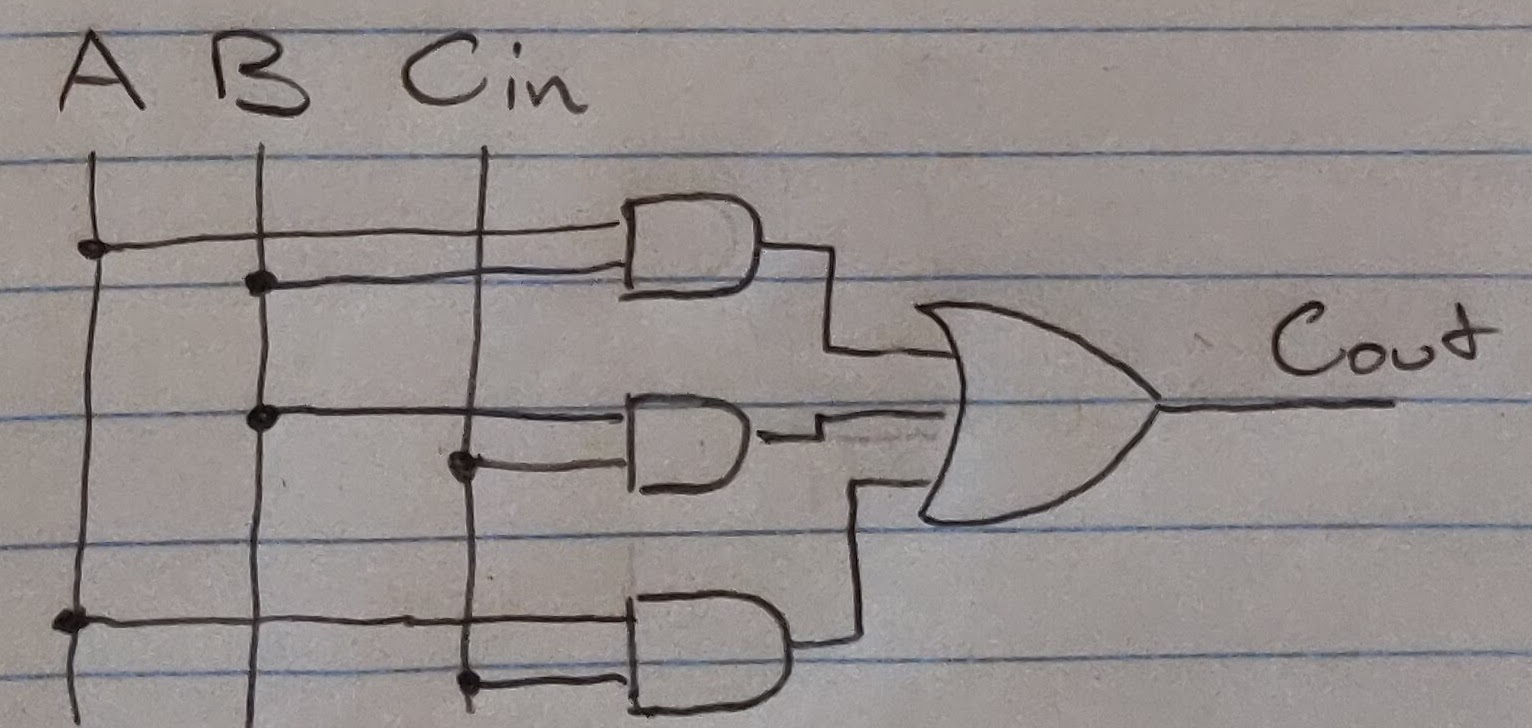 A B Cin
Cout